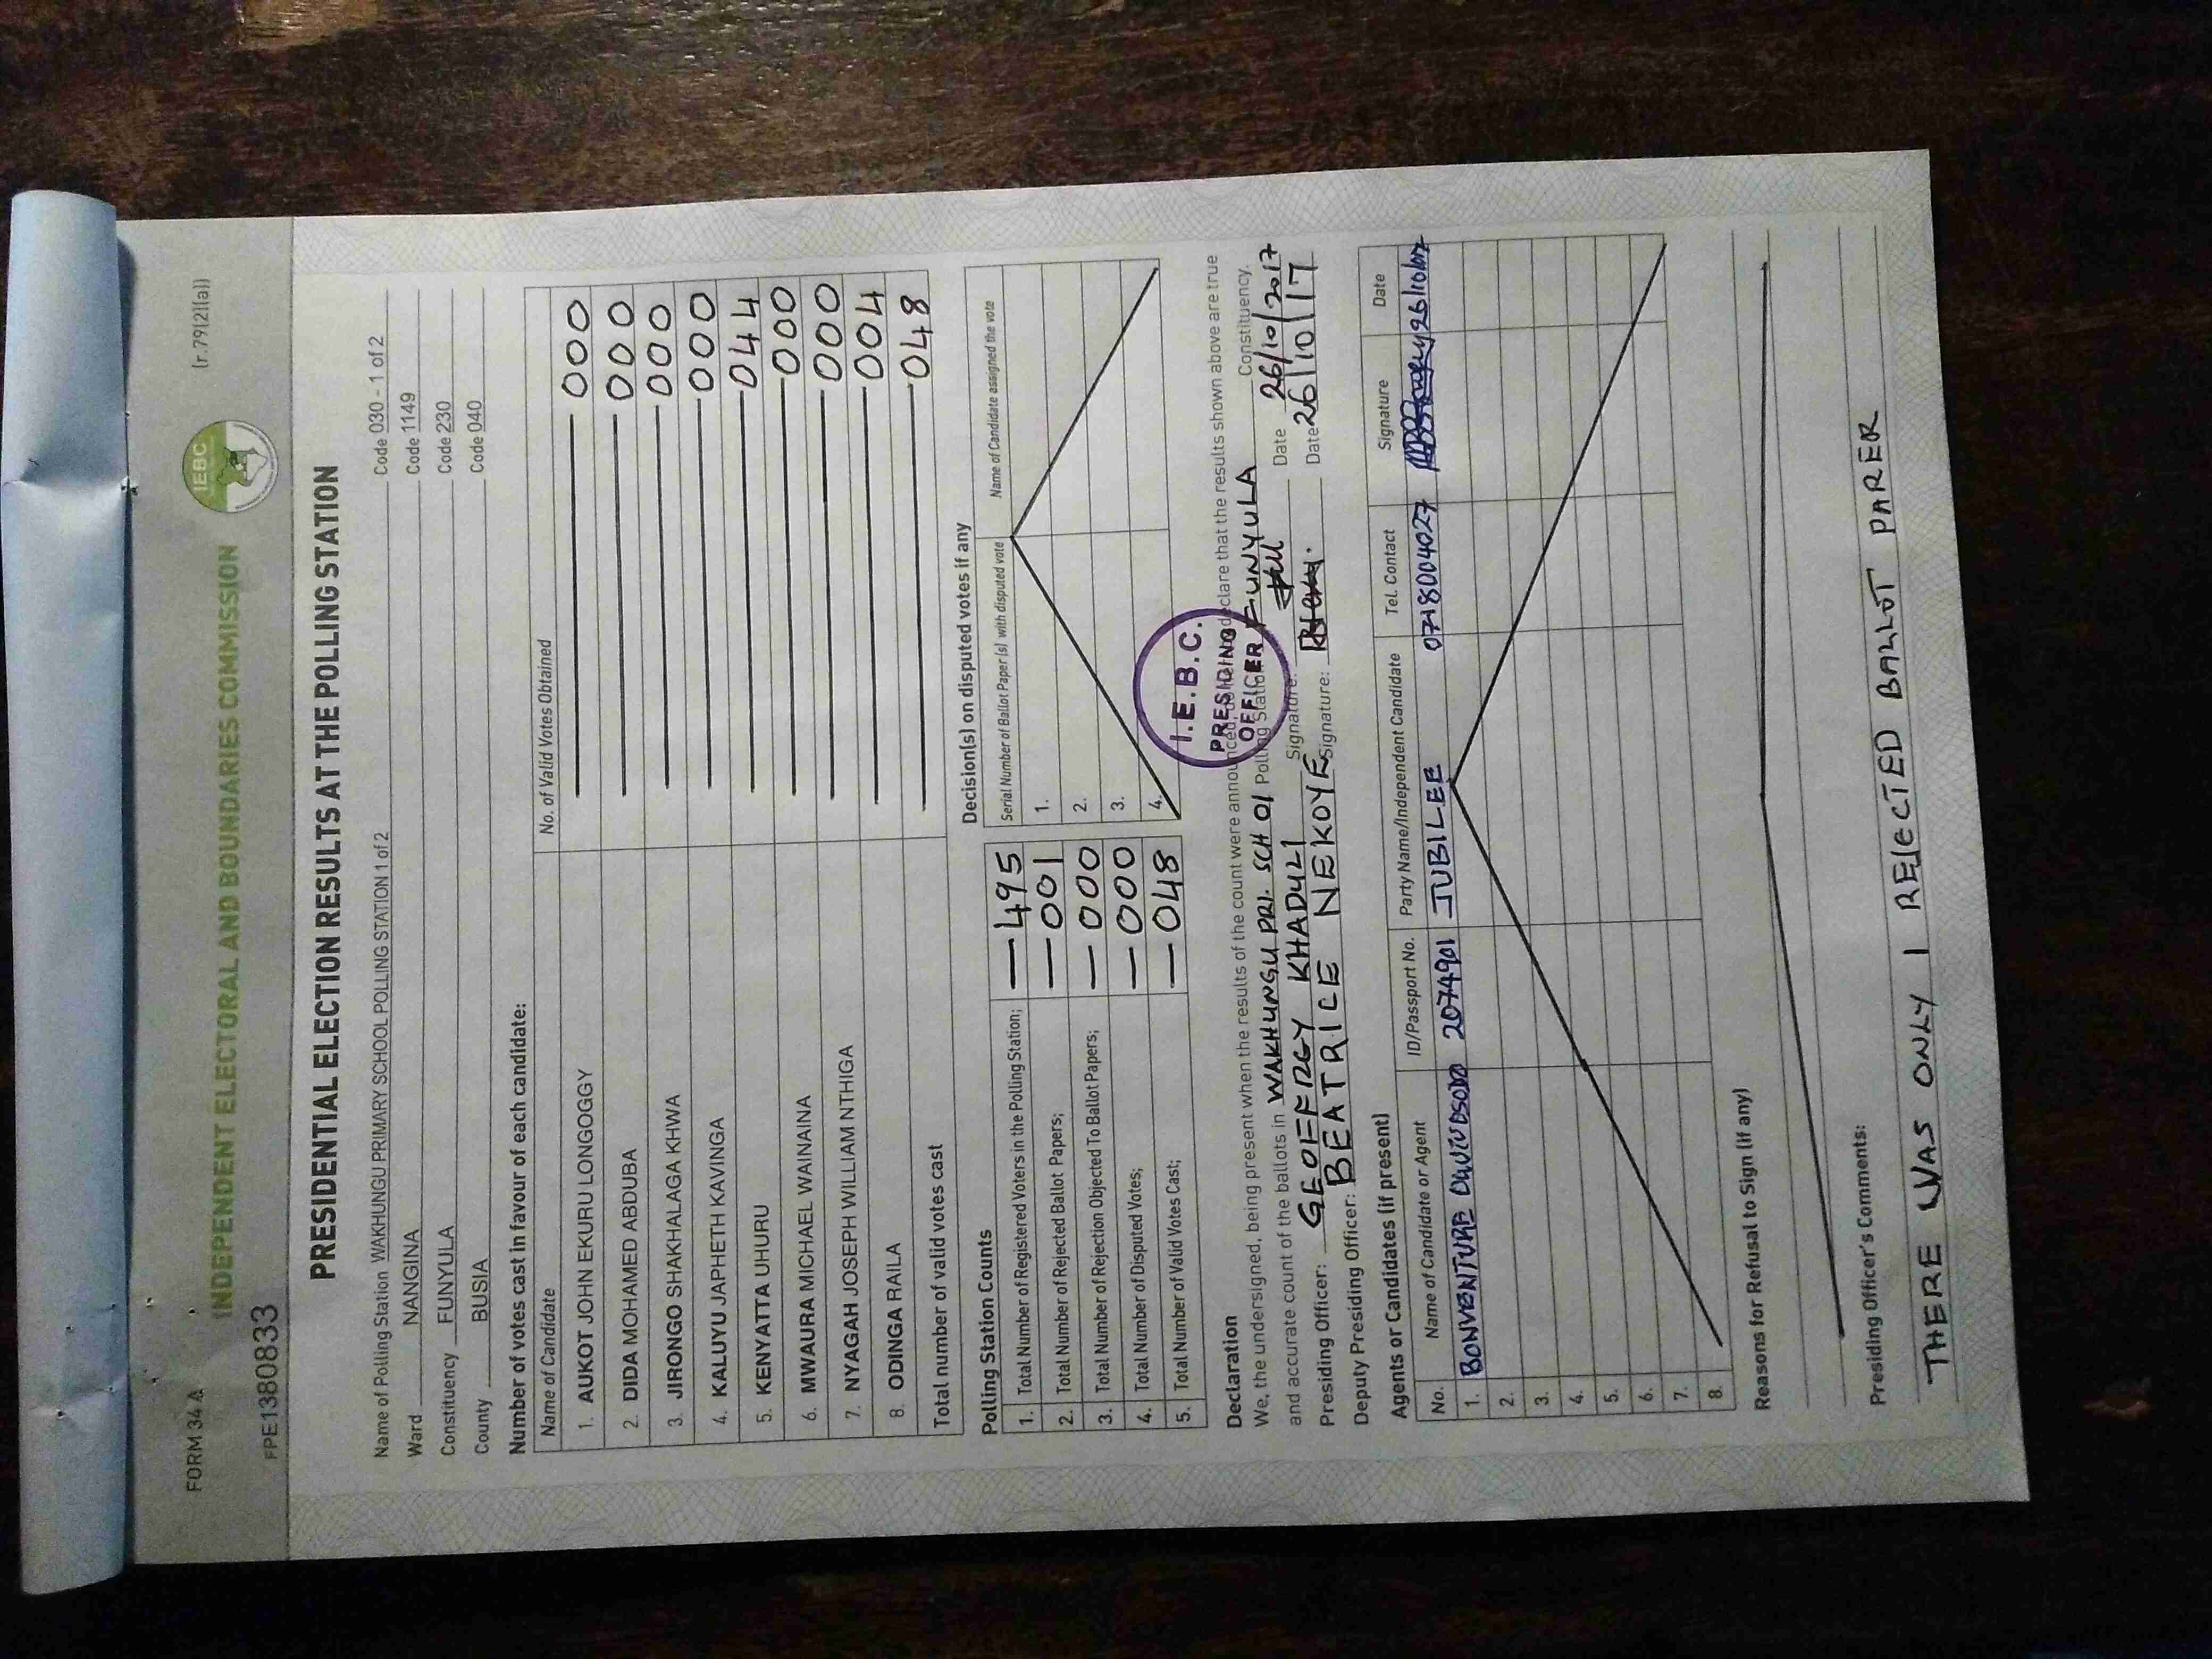 FORM 34A
(r.79(2)(a))
INDEPENDENT ELECTORAL AND BOUNDARIES COMMISSION
IEBC
FPE1380833
PRESIDENTIAL ELECTION RESULTS AT THE POLLING STATION
Name of Polling Station WAKHUNGU PRIMARY SCHOOL POLLING STATION 1 of 2 Code 030 - 1 of 2
Ward NANGINA Code 1149
Constituency FUNYULA Code 230
County BUSIA Code 040
Number of votes cast in favour of each candidate:
Name of Candidate No. of Valid Votes Obtained
1. AUKOT JOHN EKURU LONGOGGY 000
2. DIDA MOHAMED ABDUBA 000
3. JIRONGO SHAKHALAGA KHWA 000
4. KALUYU JAPHETH KAVINGA 000
5. KENYATTA UHURU 044
6. MWAURA MICHAEL WAINAINA 000
7. NYAGAH JOSEPH WILLIAM NTHIGA 000
8. ODINGA RAILA 004
Total number of valid votes cast 048
Polling Station Counts
1. Total Number of Registered Voters in the Polling Station; 495
2. Total Number of Rejected Ballot Papers; 001
3. Total Number of Rejection Objected To Ballot Papers; 000
4. Total Number of Disputed Votes; 000
5. Total Number of Valid Votes Cast; 048
Decision(s) on disputed votes if any
Serial Number of Ballot Paper (s) with disputed vote Name of Candidate assigned the vote
1.
2.
3.
4.
I.E.B.C.
PRESIDING
OFFICER
Declaration
We, the undersigned, being present when the results of the count were announced, do hereby declare that the results shown above are true
and accurate count of the ballots in WAKHUNGU PRI. SCH 01 Polling Station FUNYULA Constituency.
Presiding Officer: GEOFFRGY KHADULI Signature: Date 26/10/2017
Deputy Presiding Officer: BEATRICE NEKOYE Signature: Date 26/10/17
Agents or Candidates (if present)
No. Name of Candidate or Agent ID/Passport No. Party Name/Independent Candidate Tel. Contact Signature Date
1. BONVENTURE 2074901 JUBILEE 0718004027
2.
3.
4.
5.
6.
7.
8.
Reasons for Refusal to Sign (if any)
Presiding Officer's Comments:
THERE WAS ONLY 1 REJECTED BALLOT PARER